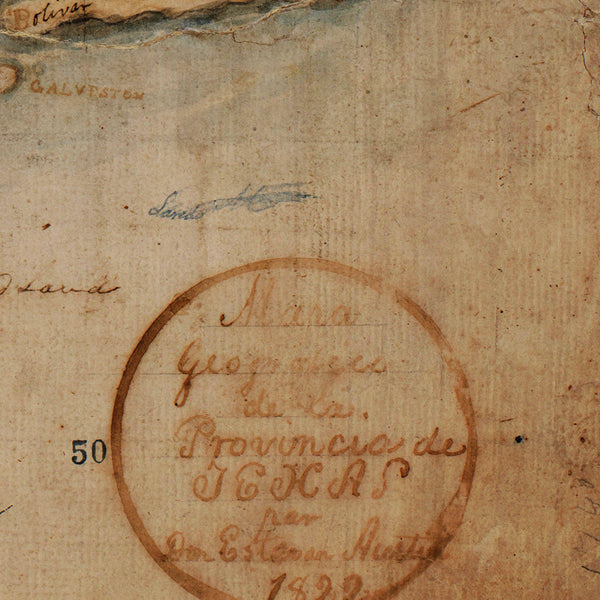 Bolivar
GALVESTON
Mapa
Geografico
de la
Provincia de
TEXAS
par
Don Estevan Austin
1822
50